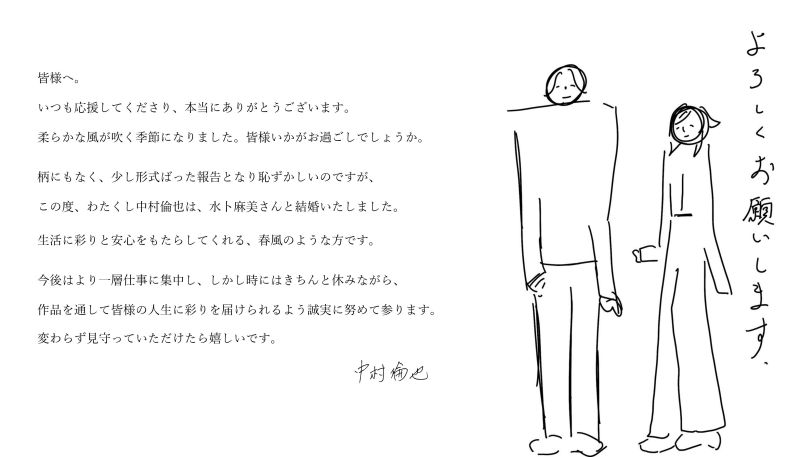 皆様へ。
いつも応援してくださり、本当にありがとうございます。
柔らかな風が吹く季節になりました。皆様いかがお過ごしでしょうか。
柄にもなく、少し形式ばった報告となり恥ずかしいのですが、
この度、わたくし中村倫也は、水卜麻美さんと結婚いたしました。
生活に彩りと安心をもたらしてくれる、春風のような方です。
今後はより一層仕事に集中し、しかし時にはきちんと休みながら、
作品を通して皆様の人生に彩りを届けられるよう誠実に努めて参ります。
変わらず見守っていただけたら嬉しいです。
中村倫也
よろしくお願いします。